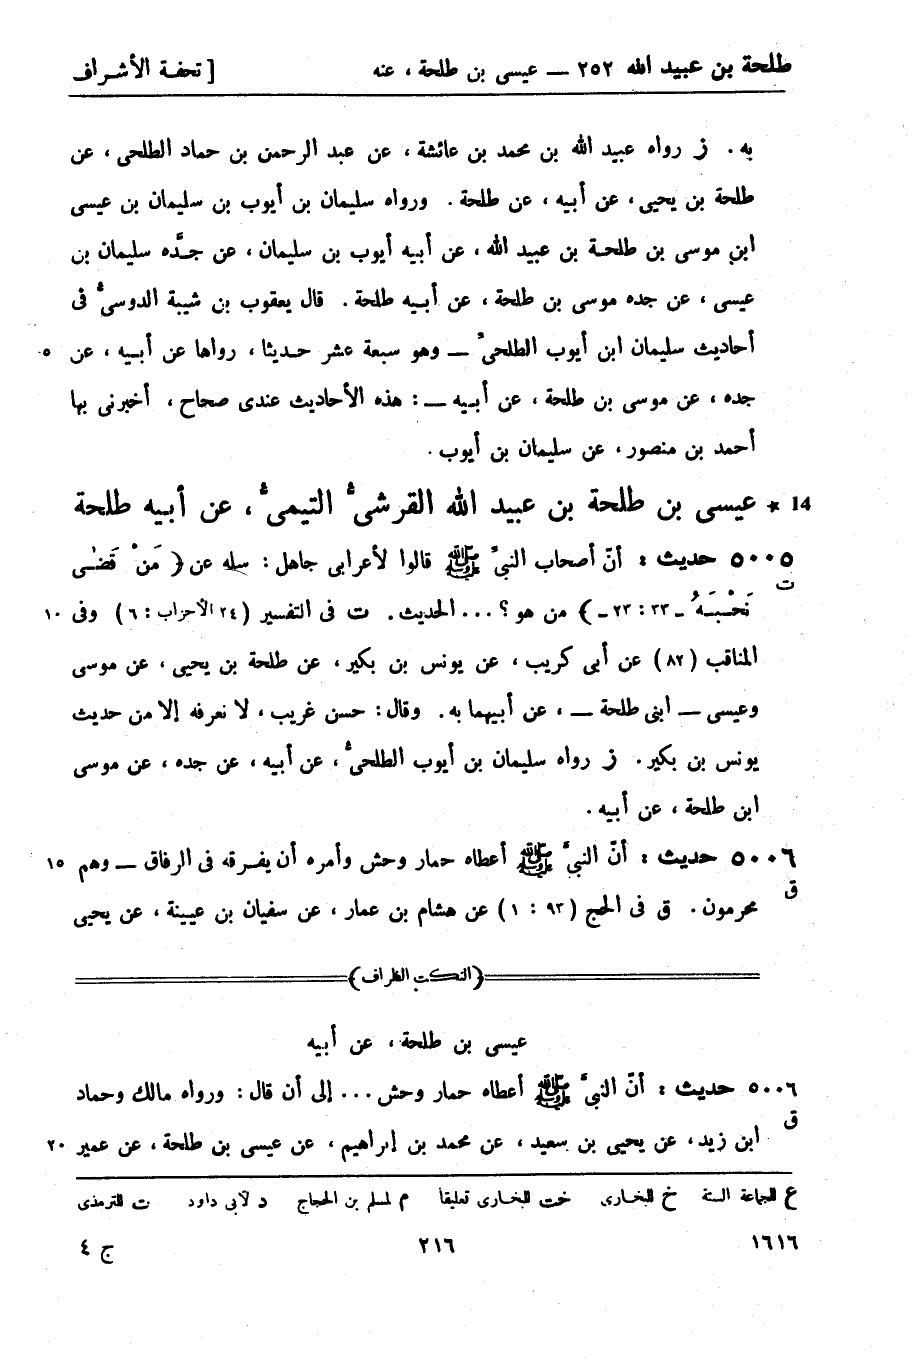 طلحة بن عبيد الله ٢٥٢ — عيسى بن طلحة ، عنه [ تحفة الأشراف
به . ز رواه عبيد الله بن محمد بن عائشة ، عن عبد الرحمن بن حماد الطلحى ، عن
طلحة بن يحيى ، عن أبيه ، عن طلحة . ورواه سليمان بن أيوب بن سليمان بن عيسى
ابن موسى بن طلحة بن عبيد الله ، عن أبيه أيوب بن سليمان ، عن جدَّه سليمان بن
عيسى ، عن جده موسى بن طلحة ، عن أبيه طلحة . قال يعقوب بن شيبة الدوسى فى
أحاديث سليمان ابن أيوب الطلحى — وهو سبعة عشر حديثا ، رواها عن أبيه ، عن ٥
جده ، عن موسى بن طلحة ، عن أبيه — : هذه الأحاديث عندى صحاح ، أخبرنى بها
أحمد بن منصور ، عن سليمان بن أيوب .
14 * عيسى بن طلحة بن عبيد الله القرشى التيمى ، عن أبيه طلحة
٥٠٠٥ حديث : أنّ أصحاب النبي ﷺ قالوا لأعرابى جاهل : سله عن ﴿ مَنْ قَضٰى
ت
نَحْبَهُ ـ ٣٣ : ٢٣ ـ ﴾ من هو ؟ ... الحديث . ت فى التفسير ( ٣٤ الأحزاب : ٦ ) وفى ١٠
المناقب ( ٨٢ ) عن أبى كريب ، عن يونس بن بكير ، عن طلحة بن يحيى ، عن موسى
وعيسى — ابنى طلحة — ، عن أبيهما به . وقال : حسن غريب ، لا نعرفه إلا من حديث
يونس بن بكير . ز رواه سليمان بن أيوب الطلحى ، عن أبيه ، عن جده ، عن موسى
ابن طلحة ، عن أبيه .
٥٠٠٦ حديث : أنّ النبي ﷺ أعطاه حمار وحش وأمره أن يفرقه فى الرفاق — وهم ١٥
ق
محرمون . ق فى الحج ( ٩٣ : ١ ) عن هشام بن عمار ، عن سفيان بن عيينة ، عن يحيى
﴿النكت الظراف﴾
عيسى بن طلحة ، عن أبيه
٥٠٠٦ حديث : أنّ النبي ﷺ أعطاه حمار وحش ... إلى أن قال : ورواه مالك وحماد
ق
ابن زيد ، عن يحيى بن سعيد ، عن محمد بن إبراهيم ، عن عيسى بن طلحة ، عن عمير ٢٠
ع للجماعة الستة خ للبخارى خت للبخارى تعليقا م لمسلم بن الحجاج د لابى داود ت للترمذى
١٦١٦ ٢١٦ ج ٤